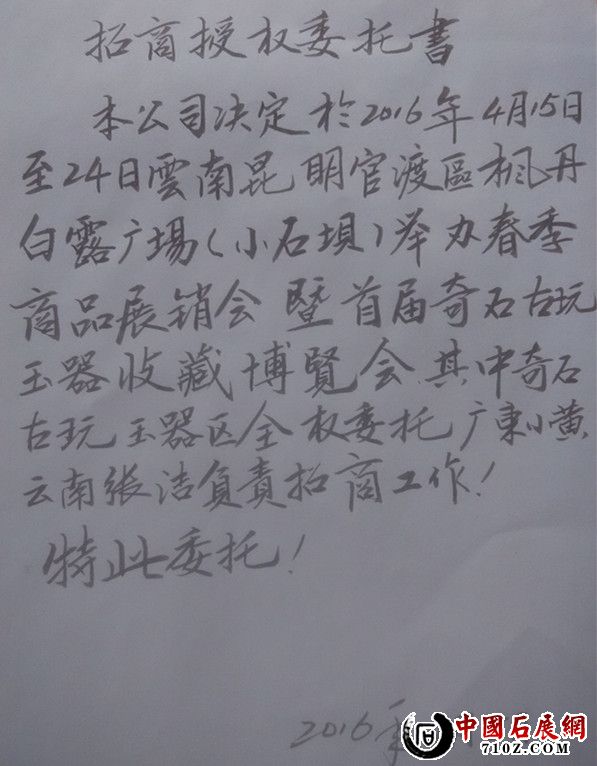 招商授权委托書
本公司决定於2016年4月15日
至24日雲南昆明官渡區枫丹
白露广場(小石坝)举办春季
商品展销会暨首届奇石古玩
玉器收藏博覽会.其中奇石
古玩玉器区全权委托广東小黄,
云南张洁負責招商工作!
特此委托!
2016年
中國石展網
71OZ.COM